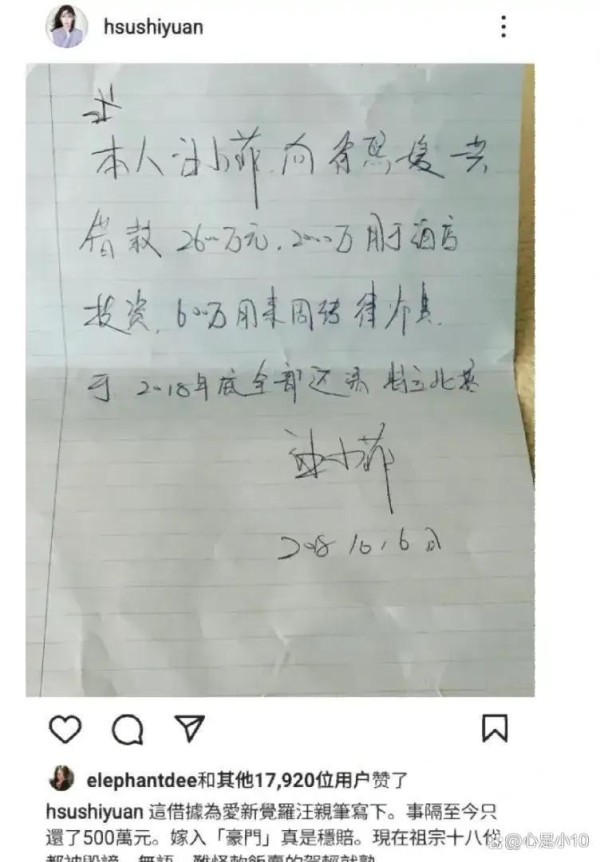 hsushiyuan
本人汪小菲向徐熙媛共
借款2600万元，2000万用于酒店
投资，600万用来周转
于2018年底全部还清 特立此
汪小菲
2018.10.6日
elephantdee和其他17,920位用户赞了
hsushiyuan 這借據為愛新覺羅汪親筆寫下。事隔至今只
還了500萬元。嫁入「豪門」真是穩賠。現在祖宗十八代
都被毀謗，無語，難怪軟飯賣的駕輕就熟
@心是小10